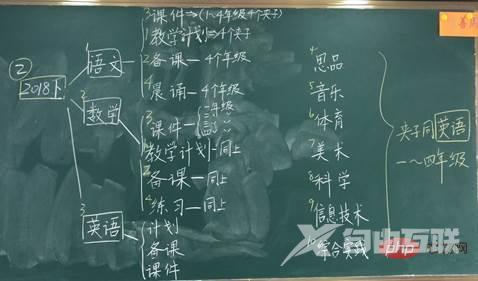 ② 2018下
1 语文
3 课件⇒(1~4年级4个夹子)
1 教学计划⇒4个夹子
2 备课—4个年级
4 晨诵—4个年级
2 数学
3 课件—
二年级
三〃
四〃
教学计划—同上
备课—同上
4 练习—同上
3 英语
计划
备课
课件
4 思品
5 音乐
6 体育
7 美术
8 科学
9 信息技术
综合实践
夹子同英语
一~四年级
自由互联
php